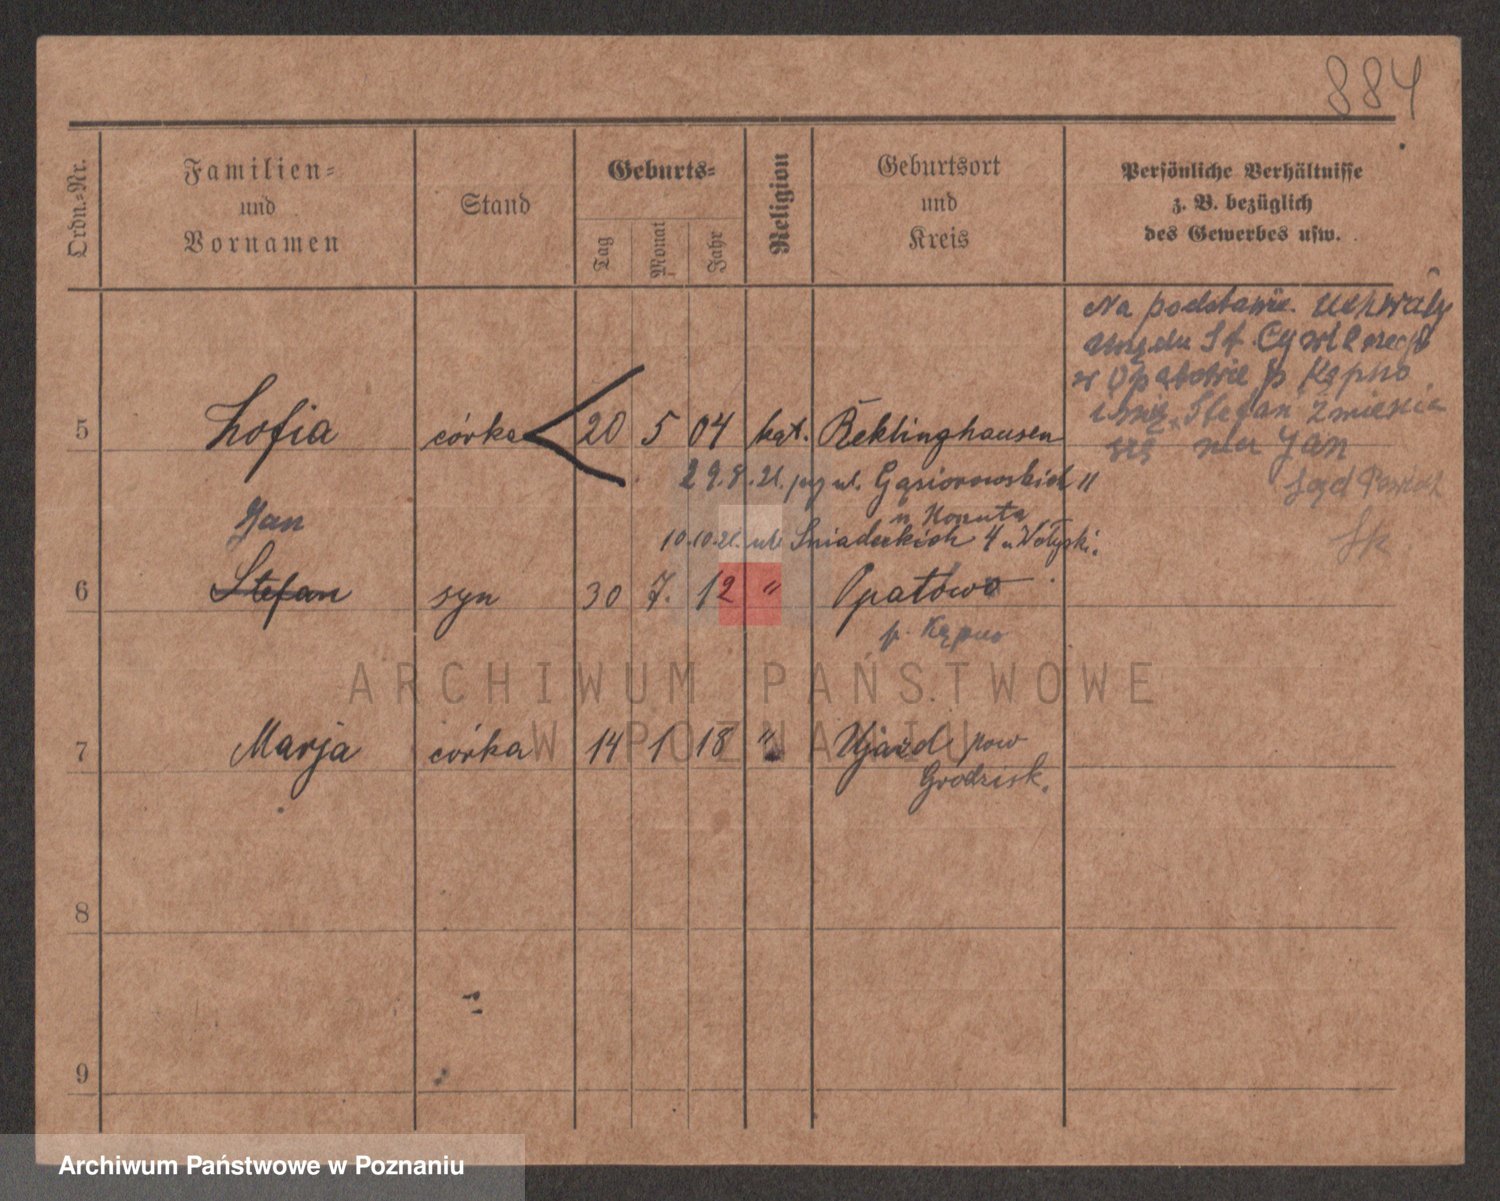 884
Ordn.-Nr.
Familien-
und
Vornamen
Stand
Geburts-
Tag
Monat
Jahr
Religion
Geburtsort
und
Kreis
Persönliche Verhältnisse
z. B. bezüglich
des Gewerbes usw.
Na podstawie uchwały
Urzędu St. Cywilnego
w Opatowie p Kępno
imię Stefan zmienia
się na Jan
5 Zofia córka 20 5 04 kat. Reklinghausen
29.8.21. ul. Gąsiorowskich 11
Jan
10.10.21. ul. Śniadeckich 4 u Wołyski.
6 Stefan syn 30 7. 12 " Opatowo
p. Kępno
ARCHIWUM PAŃSTWOWE
W POZNANIU
7 Marja córka 14 1 18 " Ujazd pow
Grodzisk.
8
9
Archiwum Państwowe w Poznaniu